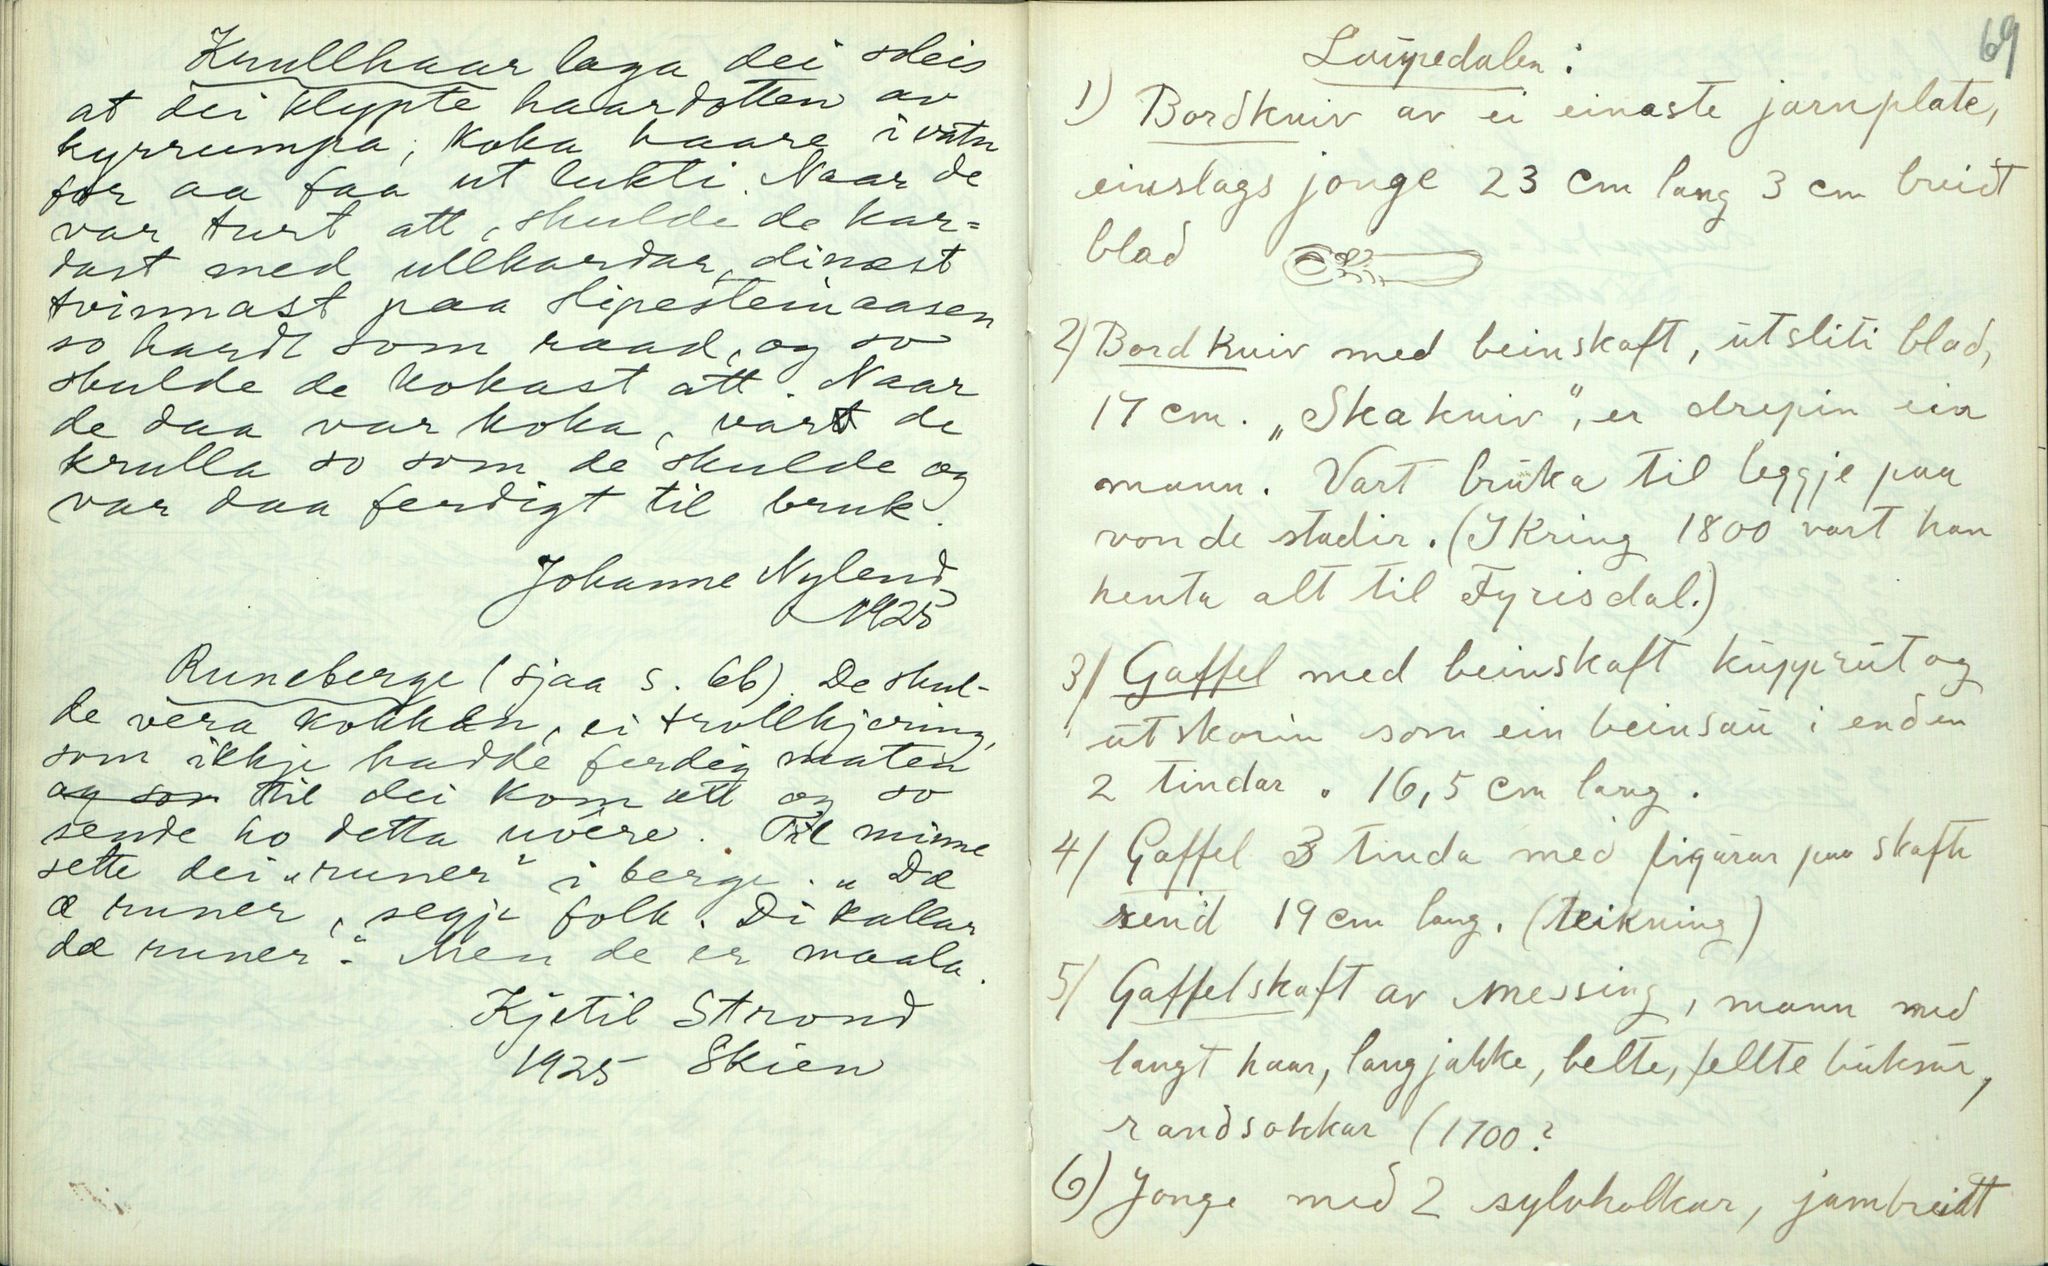 Krullhaar laga dei sleis
at dei klypte haardotten av
kyrrumpa, koka haare i vatn
for aa faa ut lukti. Naar de
var turt att, skulde de kar=
dast med ullkardar, dinæst
tvinnast paa slipesteinaasen
so hardt som raad, og so
skulde de kokast att. Naar
de daa var koka, vart de
krulla so som de skulde og
var daa ferdigt til bruk.
Johanne Nylend
1925
Runeberge (sjaa s. 66). De skul-
de vera kokkln, ei trollkjering,
som ikkje hadde ferdig maten
og son til dei kom att og so
sende ho detta uvere. Til minne
sette dei „runer" i berge. „Dæ
æ runer, segje folk. Di kallar
dæ runer". Men de er maala.
Kjetil Strond
1925 Skien
69
Loupedalen:
1) Bordkniv av ei einaste jarnplate,
einslags jonge 23 cm lang 3 cm breidt
blad
2) Bordkniv med beinskaft, utsliti blad,
17 cm. „Skakniv", er drepin ein
mann. Vart bruka til leggje paa
vonde stadir. (Ikring 1800 vart han
henta alt til Fyrisdal.)
3) Gaffel med beinskaft kupprut og
utskorin som ein beinsau i enden
2 tindar. 16,5 cm lang.
4) Gaffel 3 tinda med figurar paa skafte
send 19 cm lang. (teikning)
5) Gaffelskaft av messing, mann med
langt haar, lang jakke, belte, fellte buksur,
randsokkar (1700?
6) Jonge med 2 sylvholkar, jambreidt